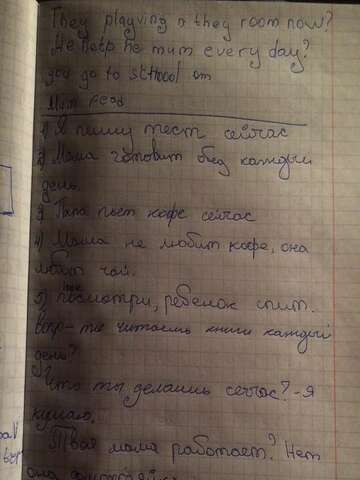 They playving a they room now?
He help he mum every day?
you go to school on
Mum read
1) Я пишу тест сейчас
2) Мама готовит обед каждый
день.
3 Папа пьет кофе сейчас
4) Мама не любит кофе, она
любит чай.
5) посмотри, ребенок спит.
вопр- ты читаешь книги каждый
день?
Что ты делаешь сейчас? - Я
кушаю.
Твоя мама работает? Нет
она